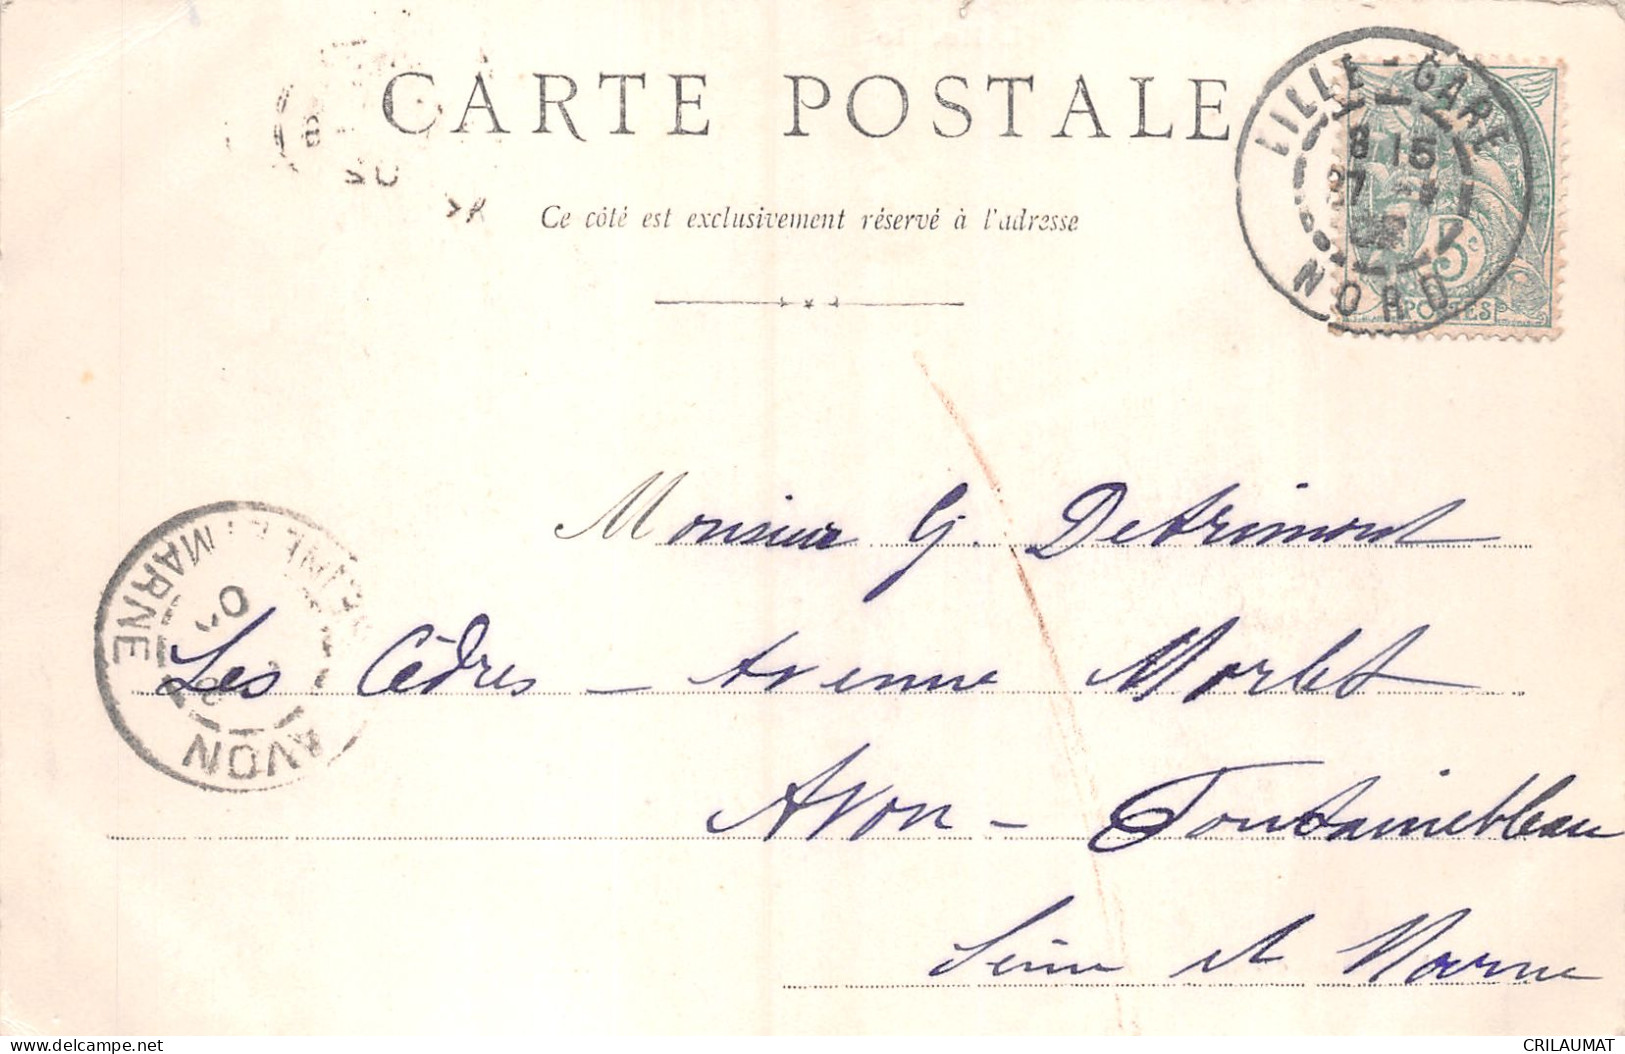 CARTE POSTALE
Ce côté est exclusivement réservé à l'adresse
LILLE-GARE
8 15
NORD
5c
POSTES
Monsieur G. Detrimont
Les Cèdres - Avenue Morlet
Avon - Fontainebleau
Seine et Marne
SEINE ET MARNE
AVON
CRILAUMAT